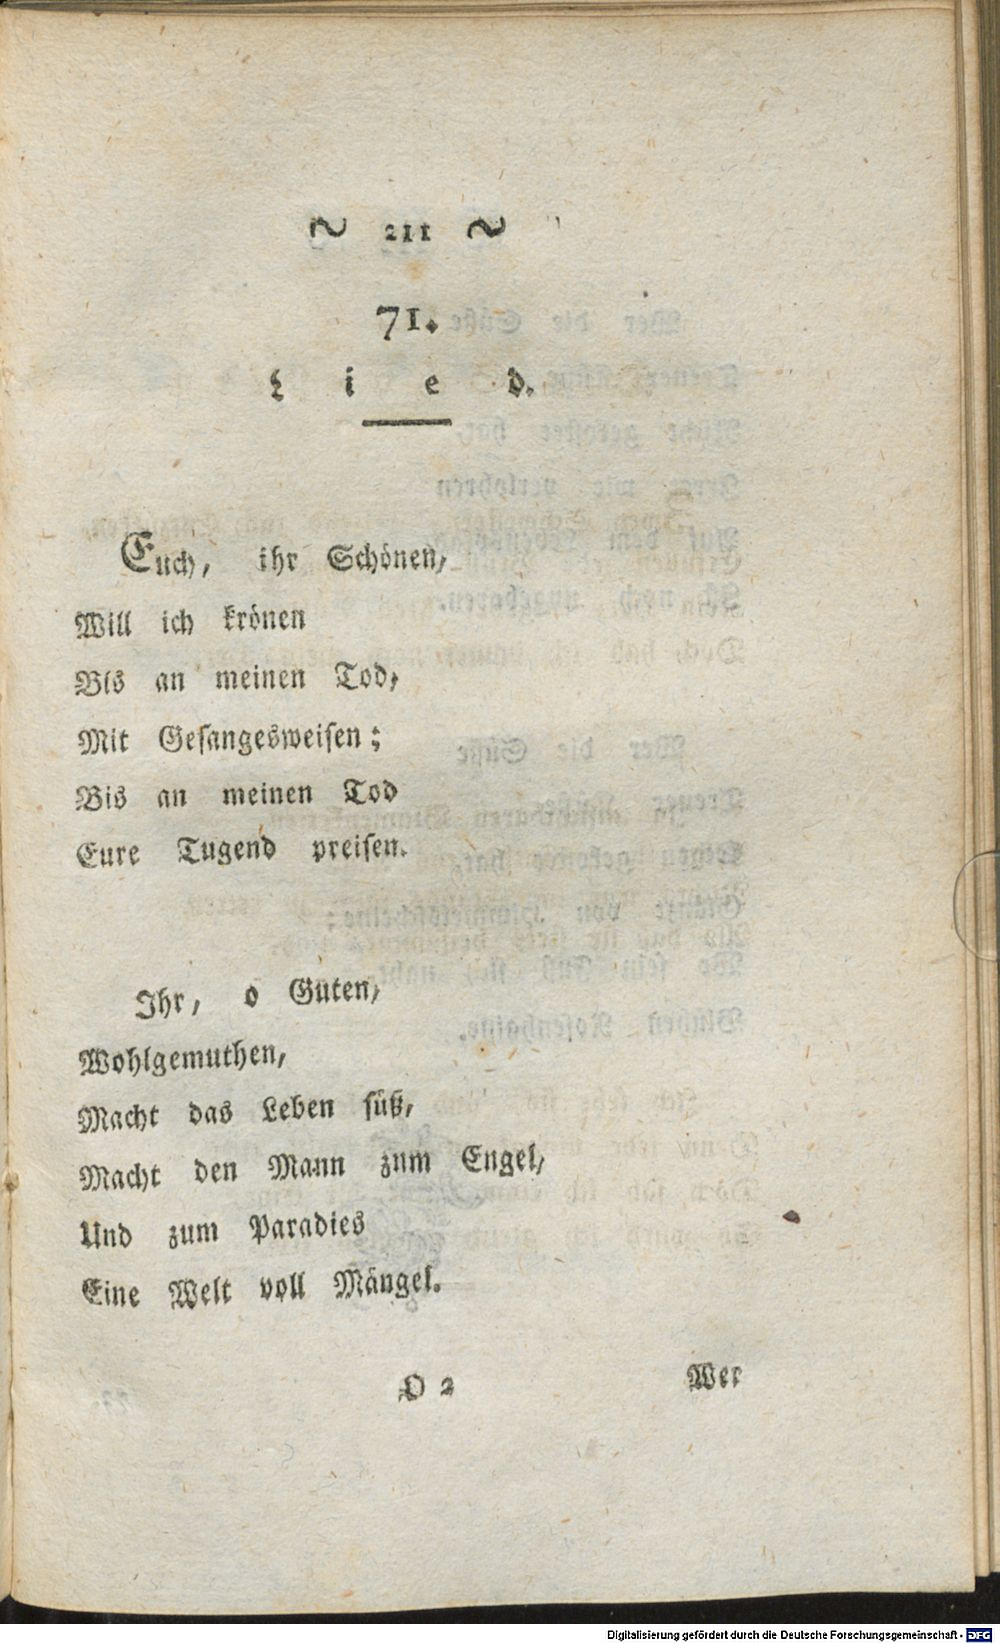 ~ 211 ~
71.
Lied.
Euch, ihr Schönen,
Will ich krönen
Bis an meinen Tod,
Mit Gesangesweisen;
Bis an meinen Tod
Eure Tugend preisen.
Ihr, o Guten,
Wohlgemuthen,
Macht das Leben süß,
Macht den Mann zum Engel,
Und zum Paradies
Eine Welt voll Mängel.
O 2
Wer
Digitalisierung gefördert durch die Deutsche Forschungsgemeinschaft - DFG